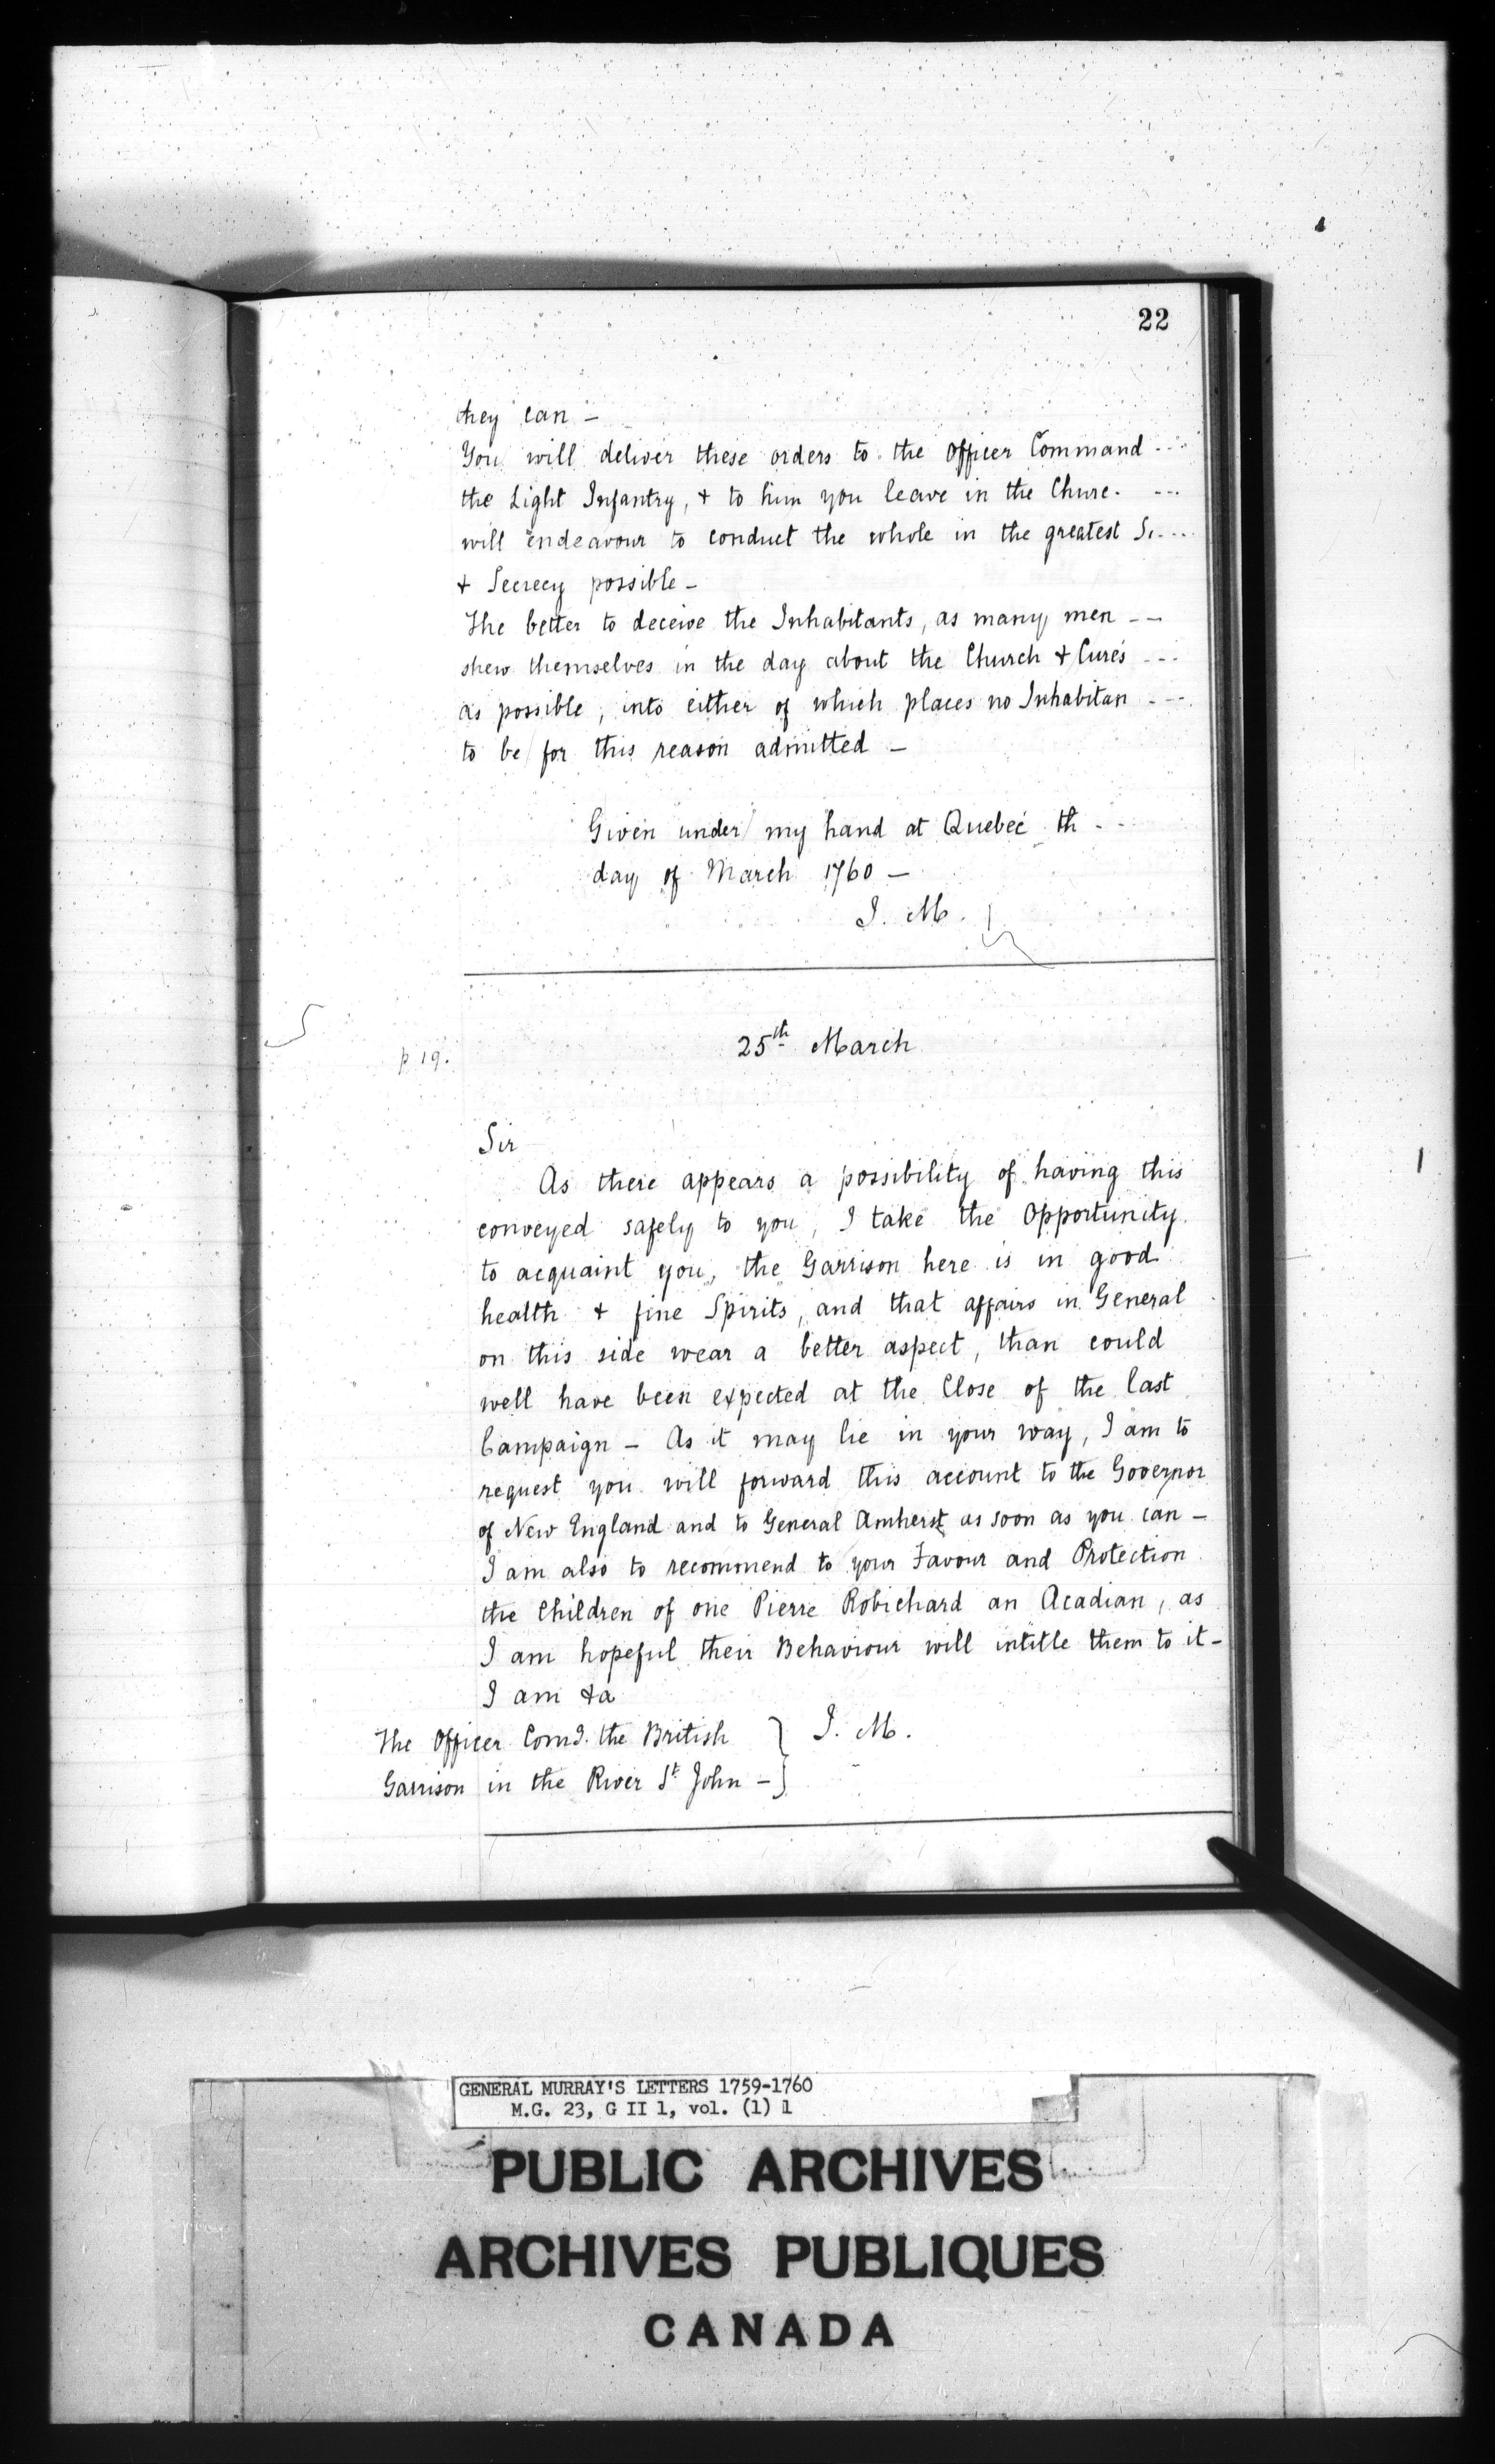 22
they can –
You will deliver these orders to the Officer Command ...
the Light Infantry, + to him you leave in the Churc. ...
will endeavour to conduct the whole in the greatest S....
+ Secrecy possible –
The better to deceive the Inhabitants, as many men --
shew themselves in the day about the Church + Curés ---
as possible, into either of which places no Inhabitan ---
to be for this reason admitted –
Given under my hand at Quebec th - -
day of March 1760 –
J. M.
p 19.
25th March
Sir
As there appears a possibility of having this
conveyed safely to you, I take the Opportunity
to acquaint you, the Garrison here is in good
health + fine Spirits, and that affairs in General
on this side wear a better aspect, than could
well have been expected at the Close of the last
Campaign – As it may lie in your way, I am to
request you will forward this account to the Governor
of New England and to General Amherst as soon as you can –
I am also to recommend to your Favour and Protection
the Children of one Pierre Robichard an Acadian, as
I am hopeful their Behaviour will intitle them to it –
I am &a
The Officer Comd. the British } J. M.
Garrison in the River St. John – }
GENERAL MURRAY'S LETTERS 1759-1760
M.G. 23, G II 1, vol. (1) 1
PUBLIC ARCHIVES
ARCHIVES PUBLIQUES
CANADA